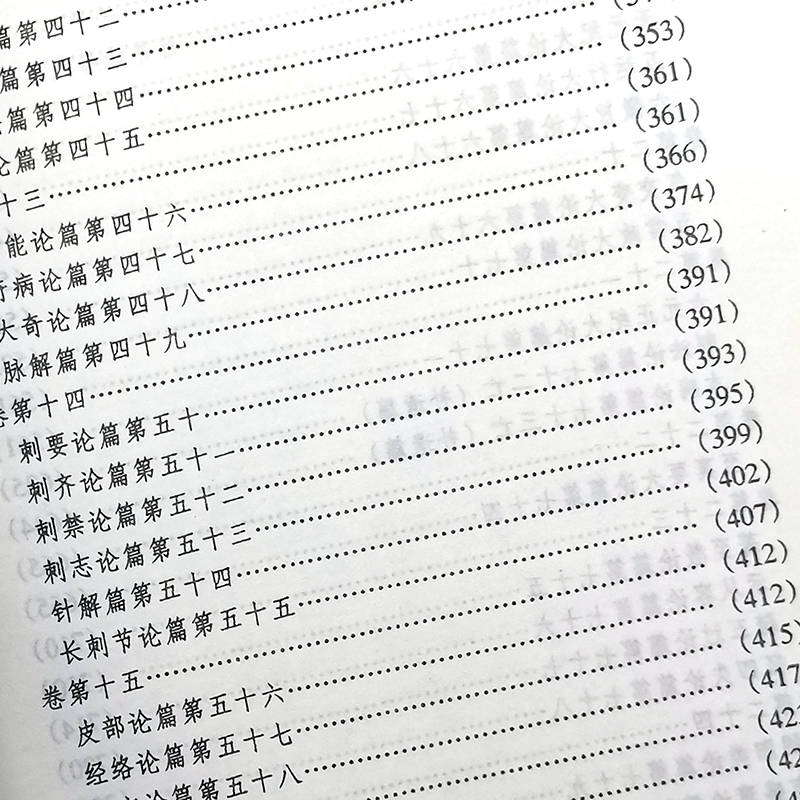 篇第四十二
篇第四十三
篇第四十四
论篇第四十五……(353)
十三……(361)
能论篇第四十六……(361)
病论篇第四十七……(366)
大奇论篇第四十八……(374)
脉解篇第四十九……(382)
卷第十四……(391)
刺要论篇第五十……(391)
刺齐论篇第五十一……(393)
刺禁论篇第五十二……(395)
刺志论篇第五十三……(399)
针解篇第五十四……(402)
长刺节论篇第五十五……(407)
卷第十五……(412)
皮部论篇第五十六……(412)
经络论篇第五十七……(415)
论篇第五十八……(417